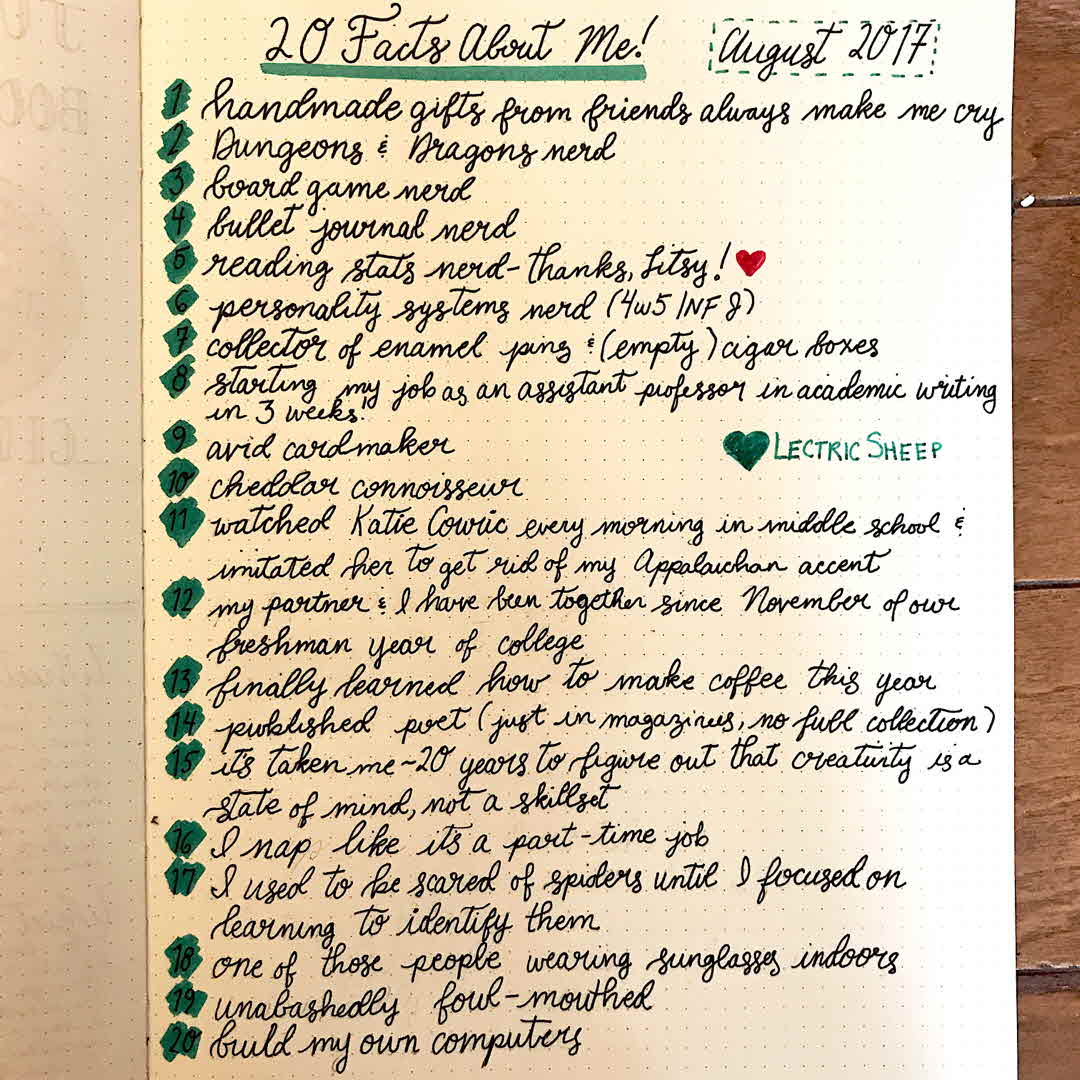 20 Facts About Me!
August 2017
1 handmade gifts from friends always make me cry
2 Dungeons & Dragons nerd
3 board game nerd
4 bullet journal nerd
5 reading stats nerd-thanks, Litsy!
6 personality systems nerd (4w5 INFJ)
7 collector of enamel pins & (empty) cigar boxes
8 starting my job as an assistant professor in academic writing
in 3 weeks!
9 avid cardmaker
LECTRIC SHEEP
10 cheddar connoisseur
11 watched Katie Couric every morning in middle school &
imitated her to get rid of my Appalaichan accent
12 my partner & I have been together since November of our
freshman year of college
13 finally learned how to make coffee this year
14 published poet (just in magazines, no full collection)
15 it's taken me ~20 years to figure out that creativity is a
state of mind, not a skillset
16 I nap like it's a part-time job
17 I used to be scared of spiders until I focused on
learning to identify them
18 one of those people wearing sunglasses indoors
19 unabashedly foul-mouthed
20 build my own computers